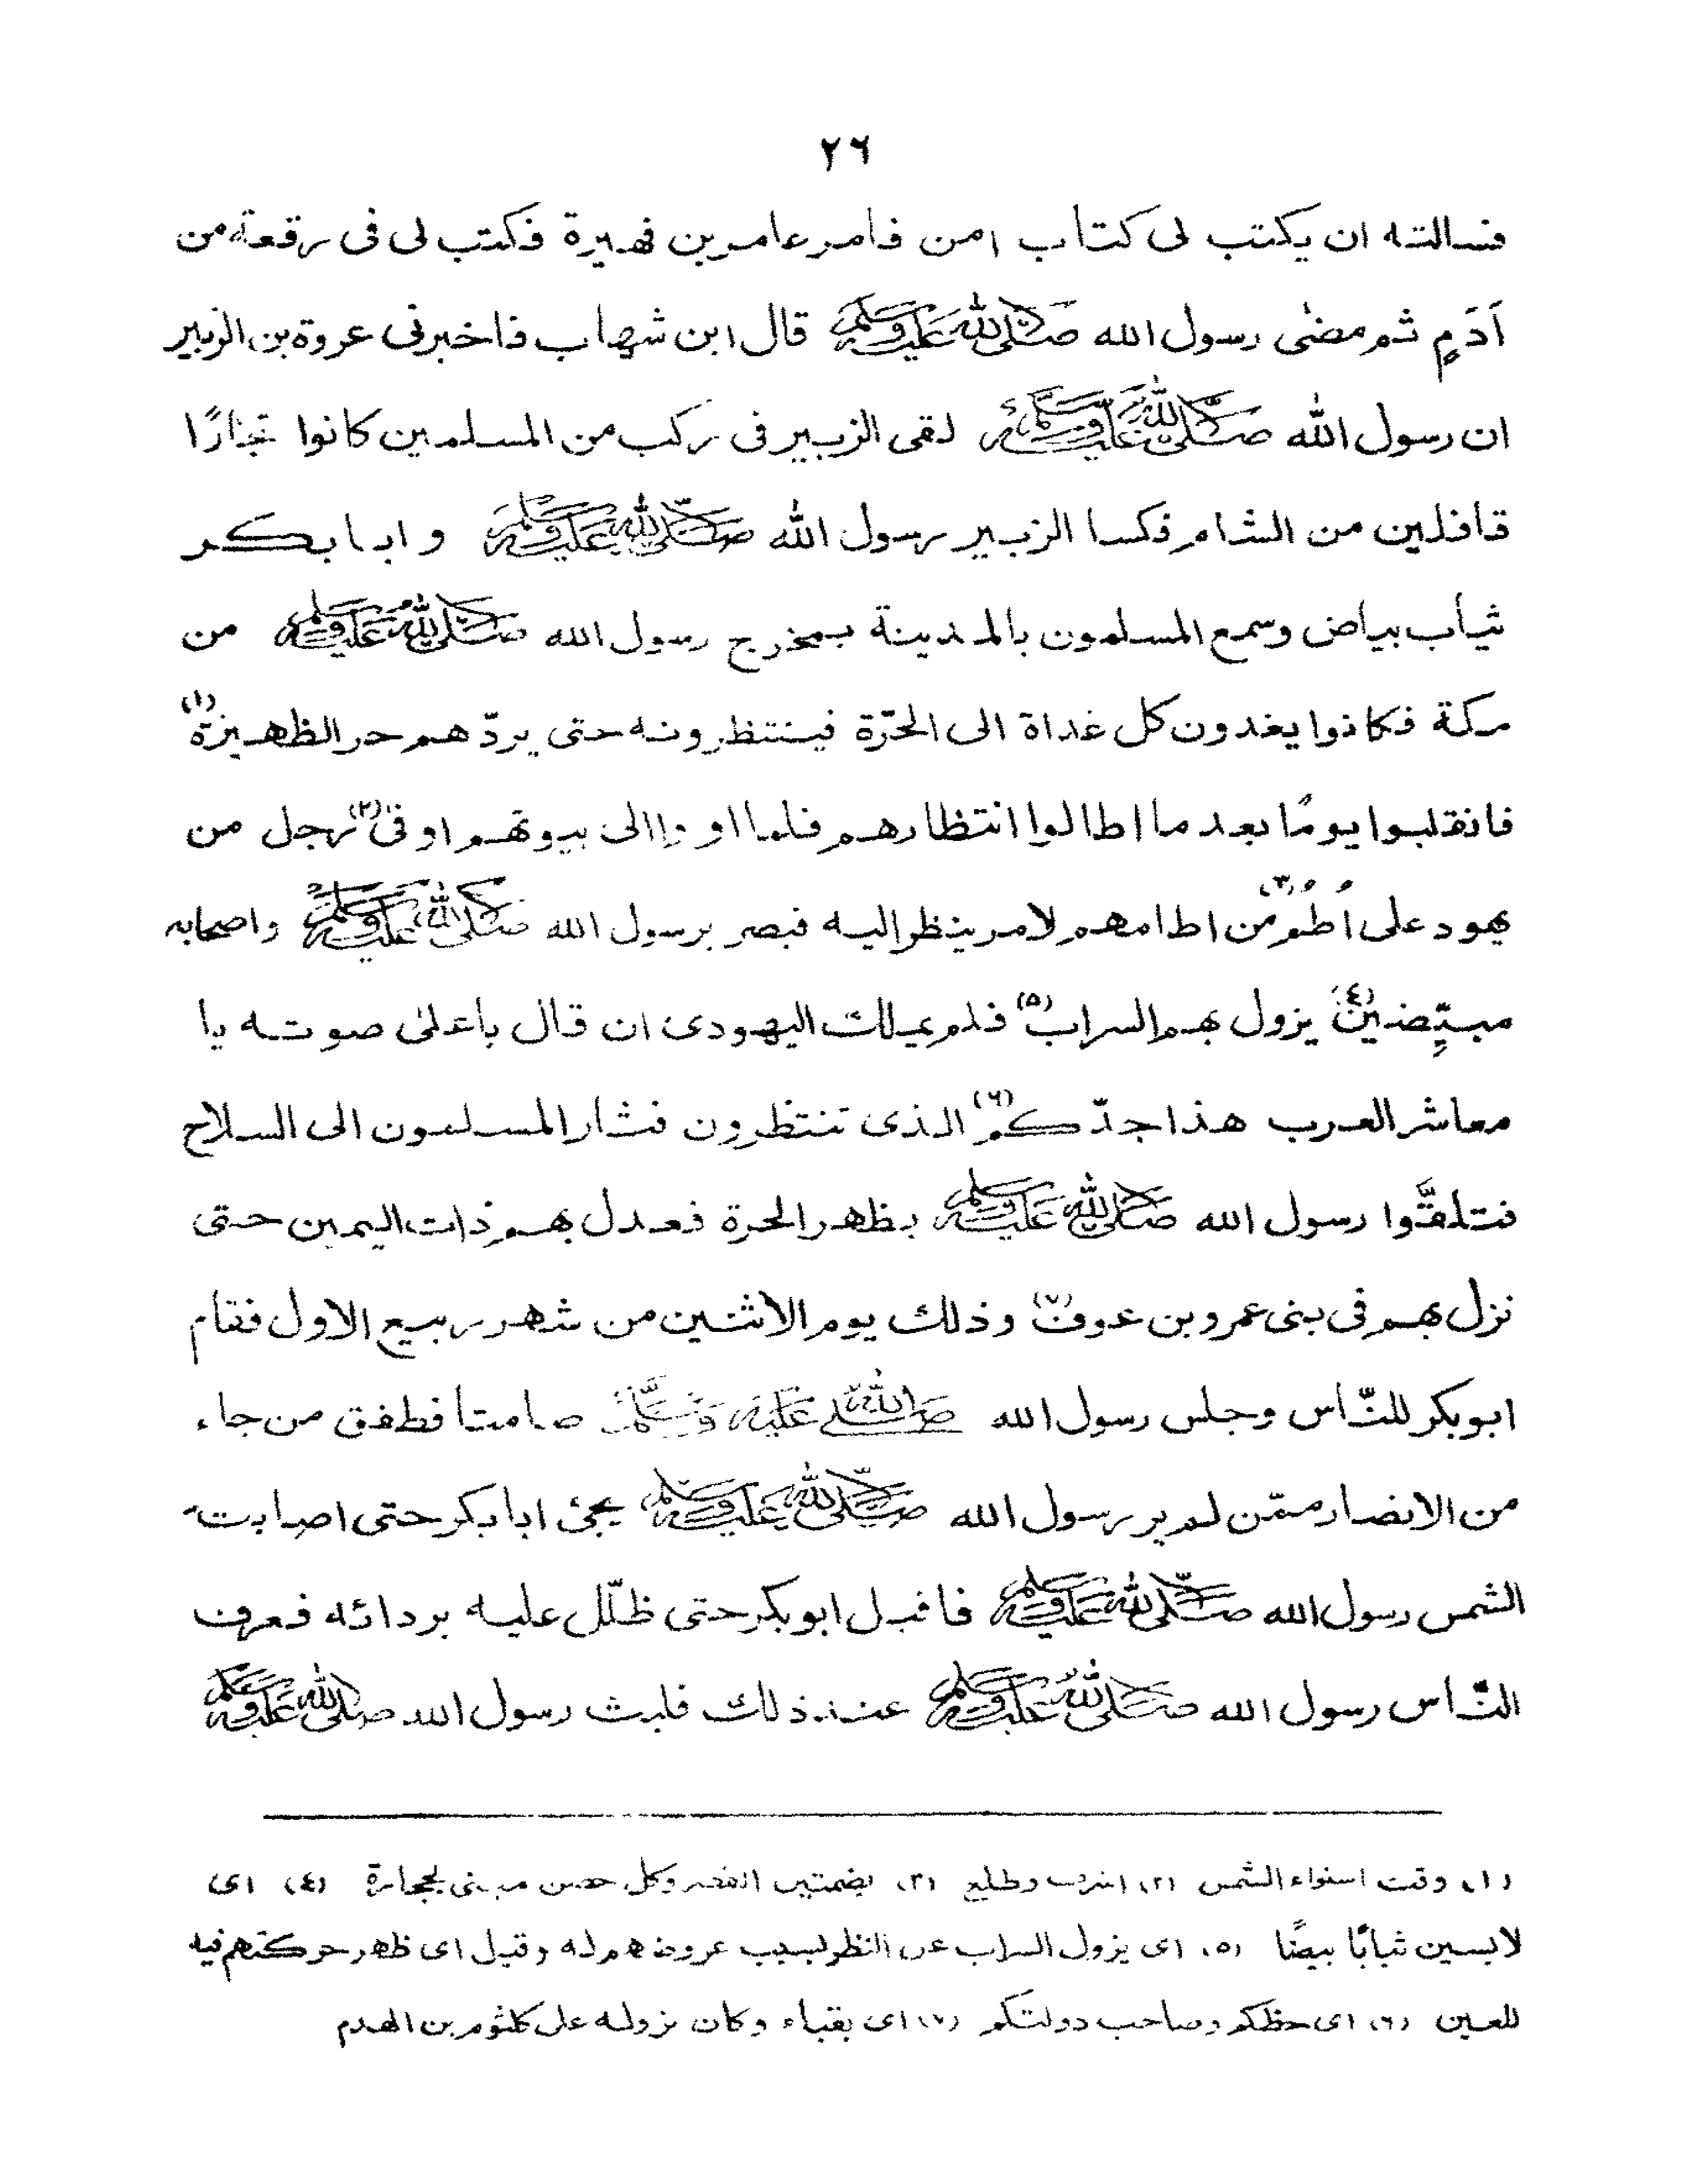 ٢٦
فسالته ان يكتب لى كتاب امن فامر عامر بن فهيرة فكتب لى فى رقعة من
اَدَمٍ ثم مضى رسول الله صلى الله عليه وسلم قال ابن شهاب فاخبرنى عروة بن الزبير
ان رسول الله صلى الله عليه وسلم لقى الزبير فى ركب من المسلمين كانوا تجارًا
قافلين من الشام فكسا الزبير رسول الله صلى الله عليه وسلم وابابكر
ثياب بياض وسمع المسلمون بالمدينة بمخرج رسول الله صلى الله عليه وسلم من
مكة فكانوا يغدون كل غداة الى الحرّة فينتظرونه حتى يردّهم حر الظهيرة (١)
فانقلبوا يومًا بعد ما اطالوا انتظارهم فلما اووا الى بيوتهم اوفى (٢) رجل من
يهود على اُطُم (٣) من اطامهم لامر ينظر اليه فبصر برسول الله صلى الله عليه وسلم واصحابه
مبيِّضين (٤) يزول بهم السراب (٥) فلم يملك اليهودى ان قال باعلىٰ صوته يا
معاشر العرب هذا جدّكم (٦) الذى تنتظرون فثار المسلمون الى السلاح
فتلقَّوا رسول الله صلى الله عليه وسلم بظهر الحرة فعدل بهم ذات اليمين حتى
نزل بهم فى بنى عمرو بن عوف (٧) وذلك يوم الاثنين من شهر ربيع الاول فقام
ابوبكر للنّاس وجلس رسول الله صلى الله عليه وسلم صامتا فطفق من جاء
من الانصار ممّن لم ير رسول الله صلى الله عليه وسلم يجئ ابابكر حتى اصابت
الشمس رسول الله صلى الله عليه وسلم فاقبل ابوبكر حتى ظلّل عليه بردائه فعرف
النّاس رسول الله صلى الله عليه وسلم عند ذلك فلبث رسول الله صلى الله عليه وسلم
(١) وقت استواء الشمس (٢) اشرف وطلع (٣) بضمتين القصر وكل حصن مبنى بحجارة (٤) اى
لابسين ثيابًا بيضًا (٥) اى يزول السراب عن النظر بسبب عروضهم له وقيل اى ظهر حركتهم فيه
للعين (٦) اى حظكم وصاحب دولتكم (٧) اى بقباء وكان نزوله على كلثوم بن الهدم